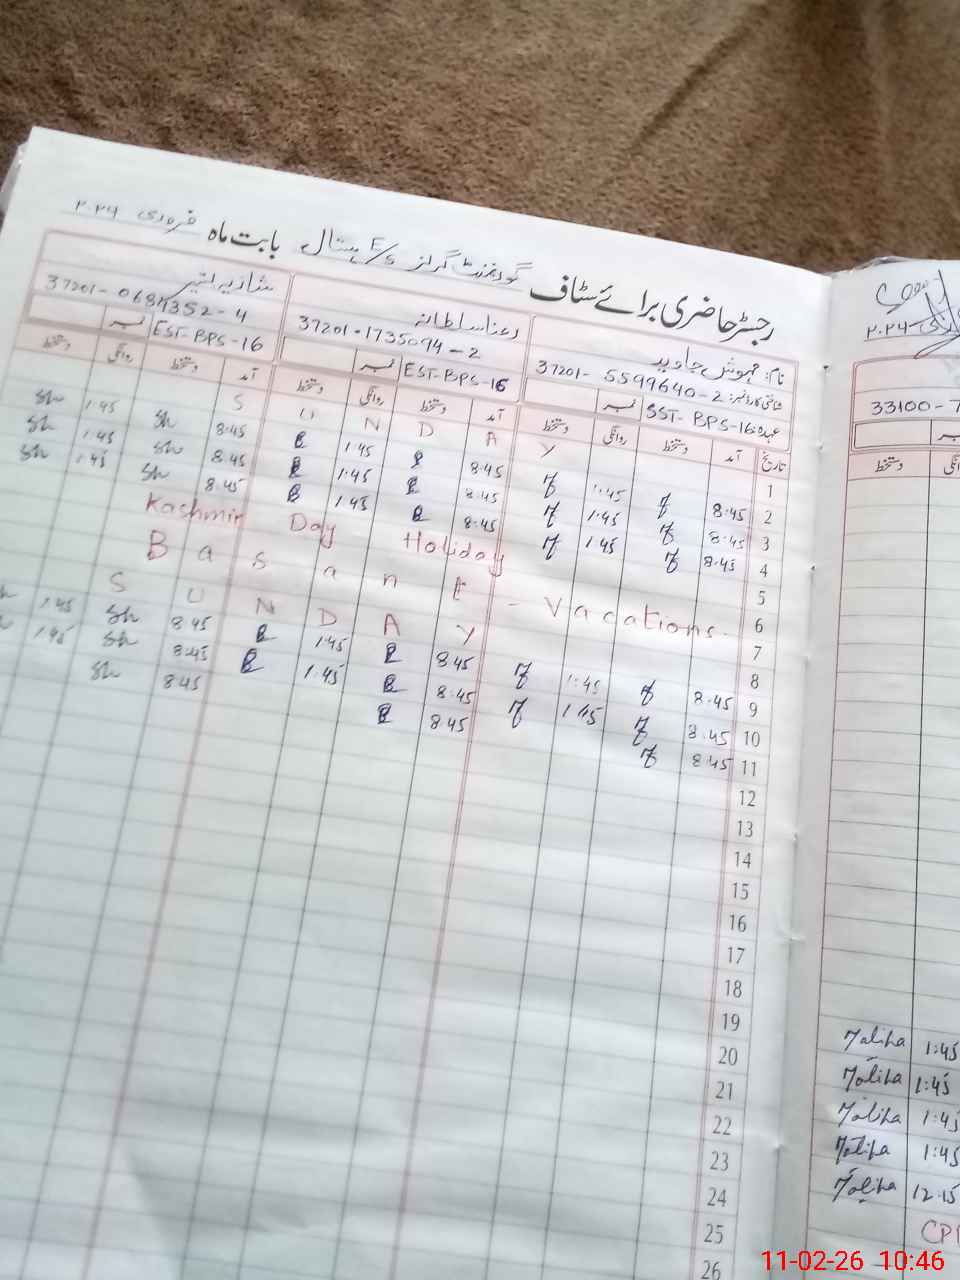 رجسٹر حاضری برائے سٹاف گورنمنٹ گرلز E/S ہستال بابت ماہ فروری ۲۰۲۶
نام: مہوش جاوید
رعنا سلطانہ
شناختی کارڈ نمبر: 37201-5599640-2
37201-1735094-2
37201-0681352-4
عہدہ: SST-BPS-16 نمبر
EST-BPS-16 نمبر
EST-BPS-16 نمبر
تاریخ آمد دستخط روانگی دستخط آمد دستخط روانگی دستخط آمد دستخط روانگی دستخط
1 S U N D A Y
2 8:45 1:45 8:45 1:45 8:45 Sh 1:45 Sh
3 8:45 1:45 8:45 1:45 8:45 Sh 1:45 Sh
4 8:45 1:45 8:45 1:45 8:45 Sh 1:45 Sh
5 Kashmir Day Holiday
6 Basant - Vacations
7
8 S U N D A Y
9 8:45 1:45 8:45 1:45 8:45 Sh 1:45
10 8:45 1:45 8:45 1:45 8:45 Sh 1:45
11 8:45 8:45 8:45 Sh
12
13
14
15
16
17
18
19
20
21
22
23
24
25
26
33100-7
دستخط
Maliha 1:45
Maliha 1:45
Maliha 1:45
Maliha 1:45
Maliha 12:15
11-02-26 10:46